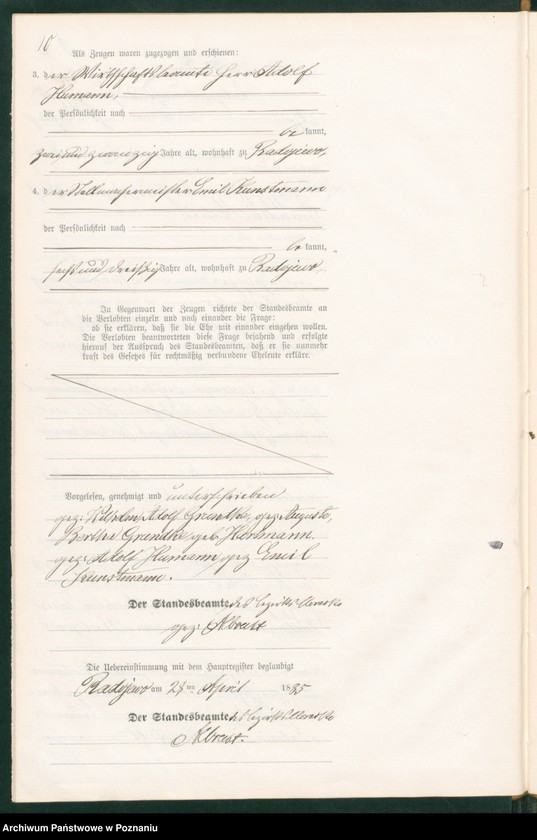 10
Als Zeugen waren zugezogen und erschienen:
3. der Wirthschaftsbeamte Herr Adolf
Humann,
der Persönlichkeit nach
be kannt,
zweiundzwanzig Jahre alt, wohnhaft zu Radojewo,
4. der Stellmachermeister Emil Kunstmann
der Persönlichkeit nach
be kannt,
sechsunddreißig Jahre alt, wohnhaft zu Radojewo,
In Gegenwart der Zeugen richtete der Standesbeamte an
die Verlobten einzeln und nach einander die Frage:
ob sie erklären, daß sie die Ehe mit einander eingehen wollen.
Die Verlobten beantworteten diese Frage bejahend und erfolgte
hierauf der Ausspruch des Standesbeamten, daß er sie nunmehr
kraft des Gesetzes für rechtmäßig verbundene Eheleute erkläre.
Vorgelesen, genehmigt und unterschrieben
gez: Wilhelm Adolf gez: Auguste,
Bertha geb:
gez: Adolf Humann gez Emil
Kunstmann.
Der Standesbeamte des Bezirks
gez:
Die Uebereinstimmung mit dem Hauptregister beglaubigt
Radojewo am ten April 1895
Der Standesbeamte des Bezirks
Archiwum Państwowe w Poznaniu